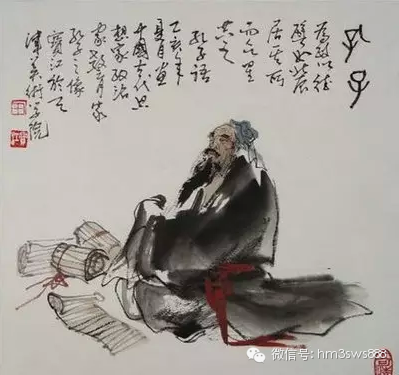 孔子
為政以德
譬如北辰
居其所
而众星
共之
孔子語
乙亥年
夏月畫
中國古代思
想家政治
家教育家
孔子之像
寶江於天
津美術学院
微信号: hm3sws888